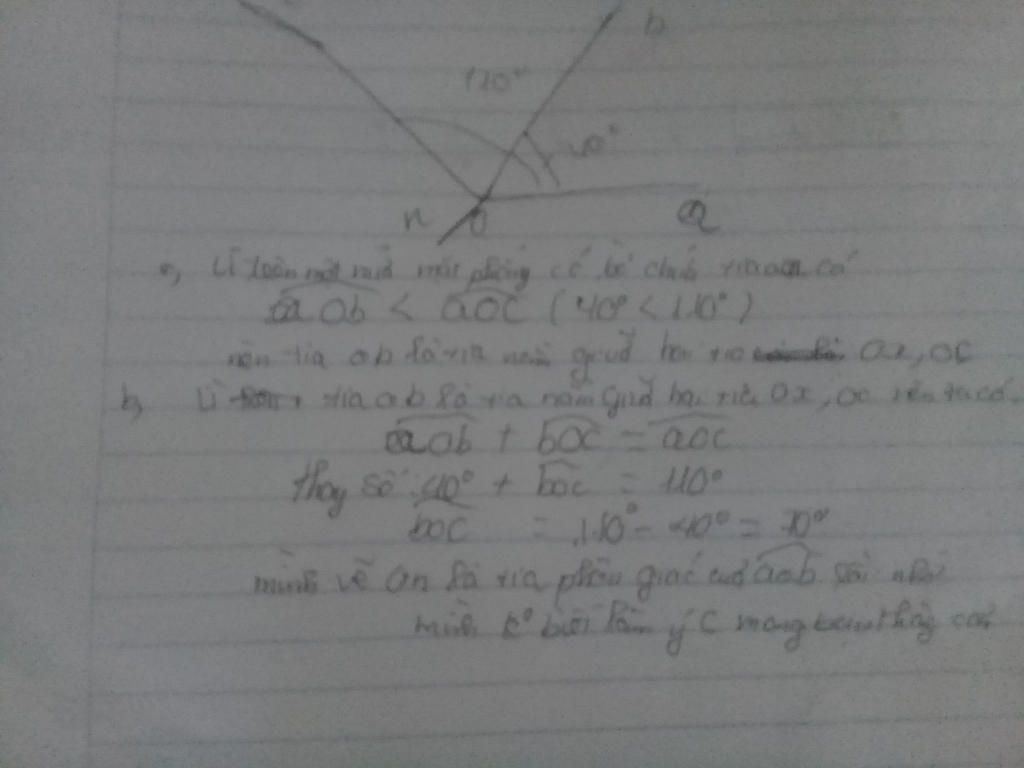 b
110°
40°
n O a
a, Vì trên một nửa mặt phẳng có bờ chứa tia oa có
aOb < aOC (40° < 110°)
nên tia ob là tia nằm giữa hai tia Ox, OC
b, Vì tia ob là tia nằm giữa hai tia Ox, OC nên ta có.
aOb + bOC = aOC
thay số: 40° + bOC = 110°
bOC = 110° - 40° = 70°
mình vẽ On là tia phân giác của aOb
mình k° biết làm ý C mong